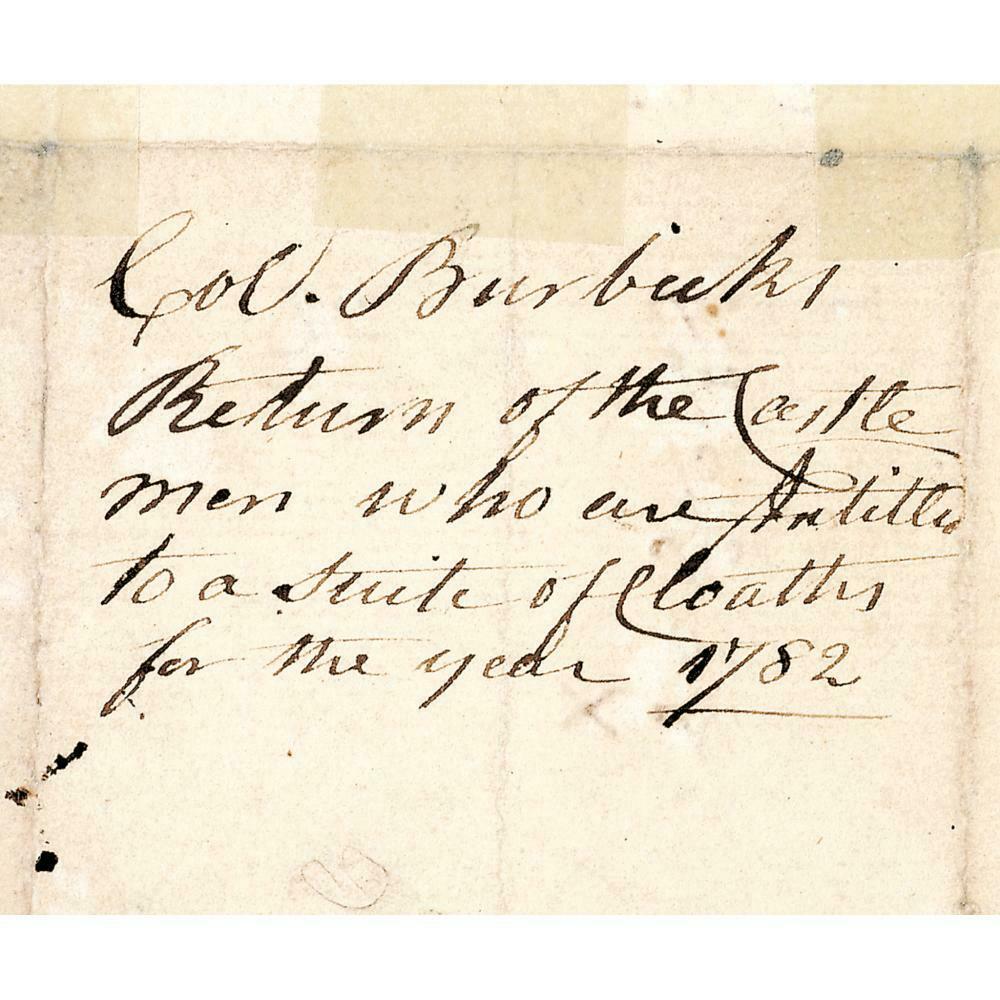 Col. Burbicks
Return of the Castle
men who are Intitled
to a Suite of Cloaths
for the year 1782